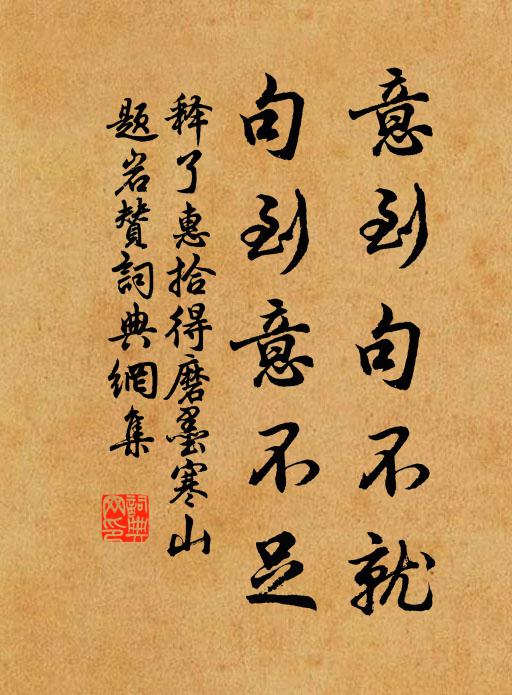 意到句不就
句到意不足
释了惠拾得磨墨寒山
题岩赞詞典網集
詞典
网印